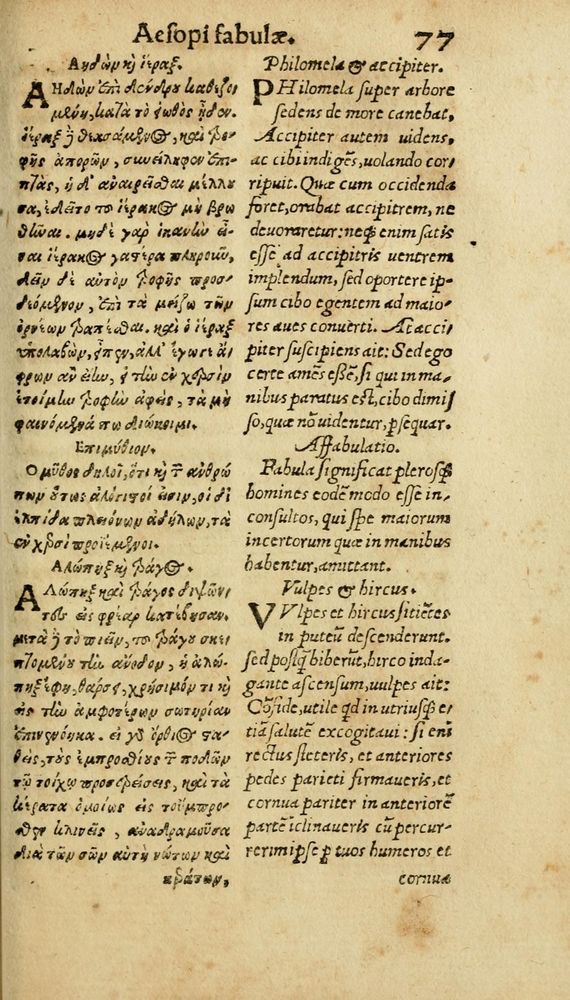 Aesopi fabulæ. 77
Ἀηδὼν κỳ ἱέραξ.
ΑΗδὼν ἐπὶ δένδρου καθεζο
μένη, κατὰ τὸ ἔωθος ᾖδεν.
ἱέραξ ἢ θεασάμενος, καὶ τρο-
φῆς ἀπορῶν, συνείληφεν ἐπι-
πτάς, ἡ δ' ἀναιρεῖσθαι μέλλου
σα, ἐδεῖτο τοῦ ἱέρακος μὴ βρω
θῆναι. μηδὲ γὰρ ἱκανὴν εἶ-
ναι ἱέρακος γαστέρα πληροῦν,
δεῖν δὲ αὐτὸν τροφῆς προσ-
δεόμενον, ἐπὶ τὰ μείζω τῶν
ὀρνέων τραπέσθαι. καὶ ὁ ἱέραξ
ὑπολαβὼν, εἶπεν, ἀλλ' ἔγωγε ἄ-
φρων ἂν εἴην, εἰ τὴν ἐν χερσὶν
ἑτοίμην τροφὴν ἀφεὶς, τὰ μὴ
φαινόμενά πω διώκοιμι.
Ἐπιμύθιον.
Ο μῦθος δηλοῖ, ὅτι κỳ τῶν ἀνθρώ
πων οὕτως ἀλόγιστοί εἰσιν, οἱ δι'
ἐλπίδα πλειόνων ἀδήλων, τὰ
ἐν χερσὶ προϊέμενοι.
Ἀλώπηξ κỳ τράγος.
ΑΛώπηξ κỳ τράγος διψῶν-
τες εἰς φρέαρ κατέβησαν.
μετὰ ἢ τὸ πιεῖν, τοῦ τράγου σκε-
πτομένου τὴν ἄνοδον, ἡ ἀλώ-
πηξ ἔφη, θάρσει, χρήσιμόν τι κỳ
εἰς τὴν ἀμφοτέρων σωτηρίαν
ἐπινενόηκα. εἰ γὸ ὄρθιος στα-
θεὶς, τοὺς ἐμπροσθίους τῶν ποδῶν
τῷ τοίχῳ προσερείσεις, καὶ τὰ
κέρατα ὁμοίως εἰς τοὔμπρο-
σθεν κλινεῖς, ἀναδραμοῦσα
διὰ τῶν σῶν αὐτὴ νώτων καὶ
κεράτων,
Philomela & accipiter.
PHilomela super arbore
sedens de more canebat.
Accipiter autem uidens,
ac cibi indigēs, uolando cor/
ripuit. Quæ cum occidenda
foret, orabat accipitrem, ne
deuoraretur: neq; enim satis
esse ad accipitris uentrem
implendum, sed oportere ip-
sum cibo egentem ad maio-
res aues conuerti. At acci-
piter suscipiens ait: Sed ego
certe amēs essē, si qui in ma/
nibus paratus est, cibo dimis
so, quæ nō uidentur, psequar.
Affabulatio.
Fabula significat plerosq;
homines eodē modo esse in/
consultos, qui spe maiorum
incertorum quæ in manibus
habentur, amittant.
Vulpes & hircus.
VVlpes et hircus sitiētes
in puteū descenderunt.
sed postq̃ biberūt, hirco inda-
gante ascensum, uulpes ait:
Cōfide, utile qd in utriusq; e/
tiā salutē excogitaui: si eni
rectus steteris, et anteriores
pedes parieti firmaueris, et
cornua pariter in anteriorē
partē iclinaueris cū percur-
rerim ipse p tuos humeros et
cornua